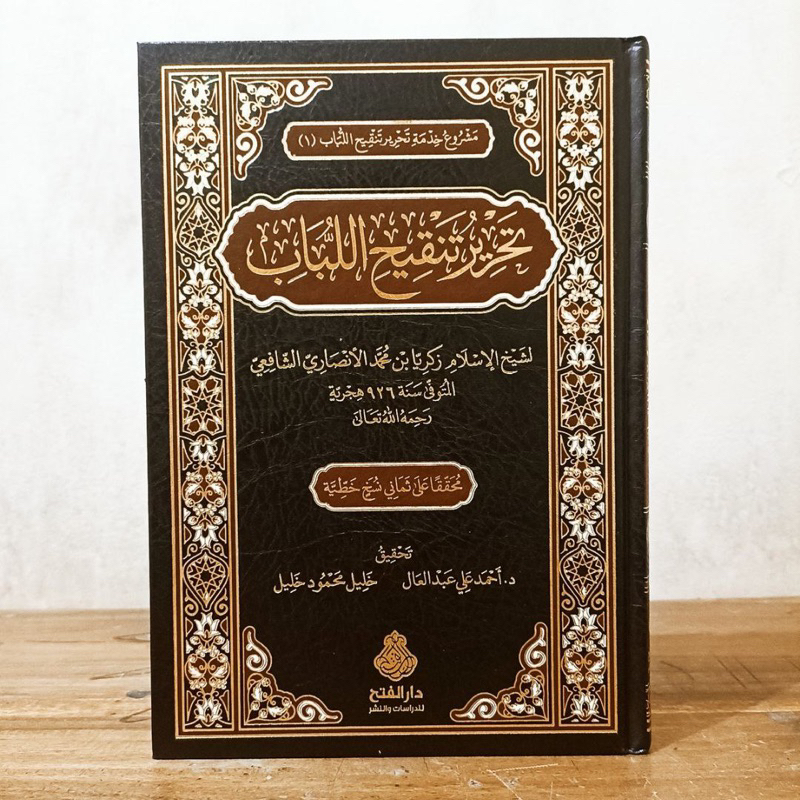 مَشْرُوعُ خِدْمَةِ تَحْرِيرِ تَنْقِيحِ اللُّبَاب (١)
تَحْرِيرُ تَنْقِيحِ اللُّبَابِ
لشَيْخِ الإِسْلَامِ زَكَرِيَّا بْنِ مُحَمَّد الأَنْصَارِيّ الشَّافِعِيّ
المُتَوفَّى سَنَة ٩٢٦ هِجْرِيَّة
رَحِمَهُ اللهُ تَعَالَى
مُحَقَّقًا عَلَى ثَمَانِي نُسَخٍ خَطِّيَّة
تَحْقِيقُ
د. أَحْمَد عَلِي عَبْد العَال خَلِيل مَحْمُود خَلِيل
دار الفتح
للدراسات والنشر